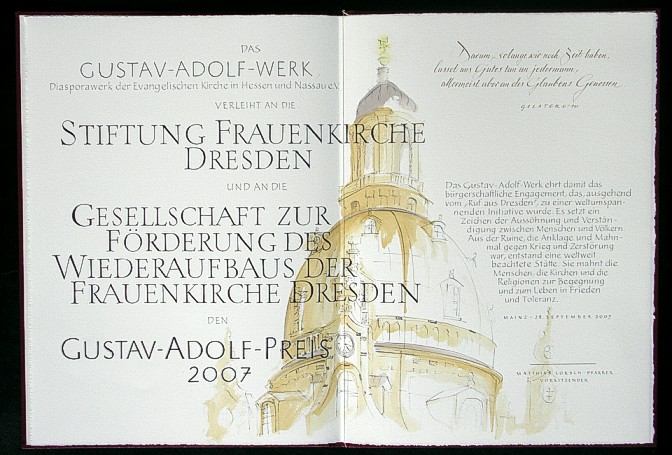 DAS
GUSTAV-ADOLF-WERK
Diasporawerk der Evangelischen Kirche in Hessen und Nassau e.V.
VERLEIHT AN DIE
STIFTUNG FRAUENKIRCHE
DRESDEN
UND AN DIE
GESELLSCHAFT ZUR
FÖRDERUNG DES
WIEDERAUFBAUS DER
FRAUENKIRCHE DRESDEN
DEN
GUSTAV-ADOLF-PREIS
2007
Darum, solange wir noch Zeit haben,
lasset uns Gutes tun an jedermann,
allermeist aber an des Glaubens Genossen.
Das Gustav-Adolf-Werk ehrt damit das
bürgerschaftliche Engagement, das, ausgehend
vom „Ruf aus Dresden", zu einer weltumspan-
nenden Initiative wurde. Es setzt ein
Zeichen der Aussöhnung und Verstän-
digung zwischen Menschen und Völkern.
Aus der Ruine, die Anklage und Mahn-
mal gegen Krieg und Zerstörung
war, entstand eine weltweit
beachtete Stätte. Sie mahnt die
Menschen, die Kirchen und die
Religionen zur Begegnung
und zum Leben in Frieden
und Toleranz.
MAINZ · 28. SEPTEMBER 2007
MATTHIAS PFARRER
VORSITZENDER